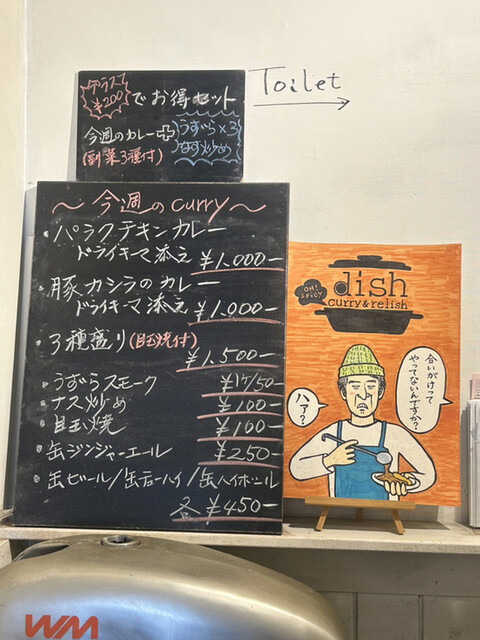 プラス
¥200
でお得セット
Toilet
今週のカレー+
うずら×3
なす炒め
(副菜3種付)
〜今週のcurry〜
・パラクチキンカレー
ドライキーマ添え
¥1.000-
・豚カシラのカレー
ドライキーマ添え
¥1.000-
・3種盛り(目玉焼付)
¥1.500-
・うずらスモーク
¥1ケ/50-
・ナス炒め
¥100-
・目玉焼
¥100-
・缶ジンジャーエール
¥250-
・缶ビール/缶チューハイ/缶ハイボール
各¥450-
OH!
SPICY
dish
curry&relish
合いがけって
やってないんですか?
ハァ?
WM